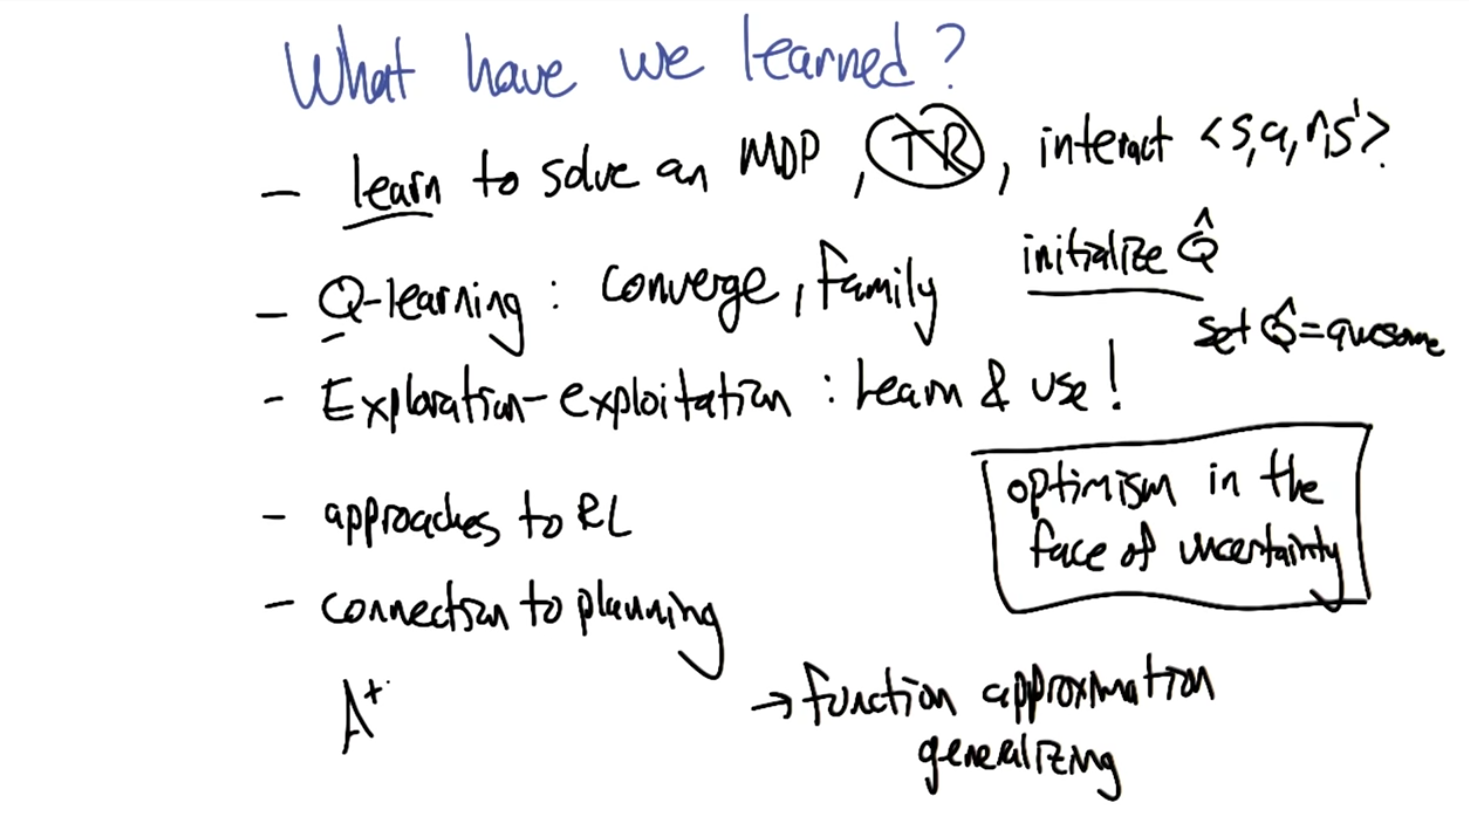 What have we learned?
- learn to solve an MDP, TR, interact <s,a,r,s'>.
- Q-learning: converge, family
initialize Q̂
set Q̂=awesome
- Exploration-exploitation: learn & use!
optimism in the
face of uncertainty
- approaches to RL
- connection to planning
A+
→ function approximation
generalizing